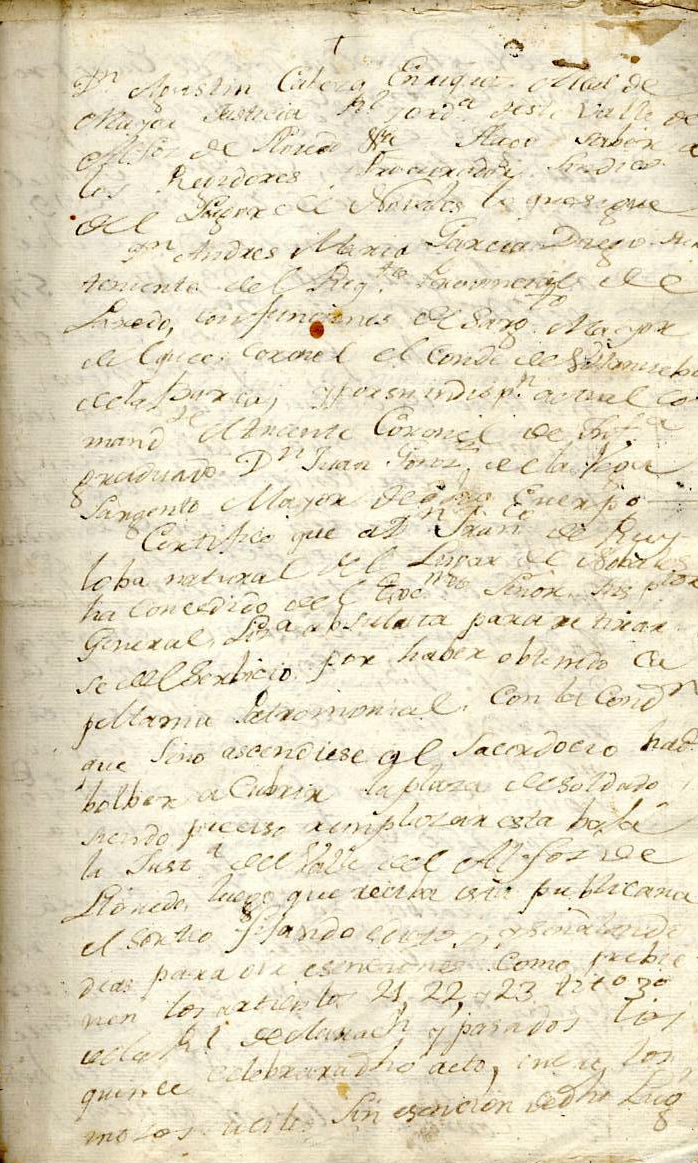 †
Dn Agustin Calera Enriquez Alcal de
Mayor Justicia Rl jorda deste Valle de
Alfoz de Lloredo &a Hago saber a
los Rexidores Procurador Sindico
del Lugar de Novales lo que sigue
Dn Andres Maria Garcia Diego
temiente del Regto Provincial de
Laredo, con funciones de Sargto Mayor
de el que es Coronel el Conde de
de la Barca, y por su indispn actual Co
mandte el teniente Coronel de Infa
graduado Dn Juan Gonz de la Vega
Sargento Mayor de dho Cuerpo
Certifico que a Franco de Ruy
loba natural del Lugar de Novales
ha concedido el Exmo Señor Insptor
General Liza absoluta para retirar
se del Serbicio por haber obtenido Ca
pellania Patromonial con la Condn
que sino ascendiese al Sacerdocio had
bolber a Cubrir la plaza de soldado
siendo preciso remplazar esta baja
la Justa del Valle del Alfoz de
Lloredo, luego que reciva esta publicara
el sorteo y señalando
dias para oir esenciones como prebie
nen los articulos 21, 22, y 23 tito 3o
de la Rl declarach y pasados los
quince celebrara dho acto, entre los
mozos sin esencion de dho Lug